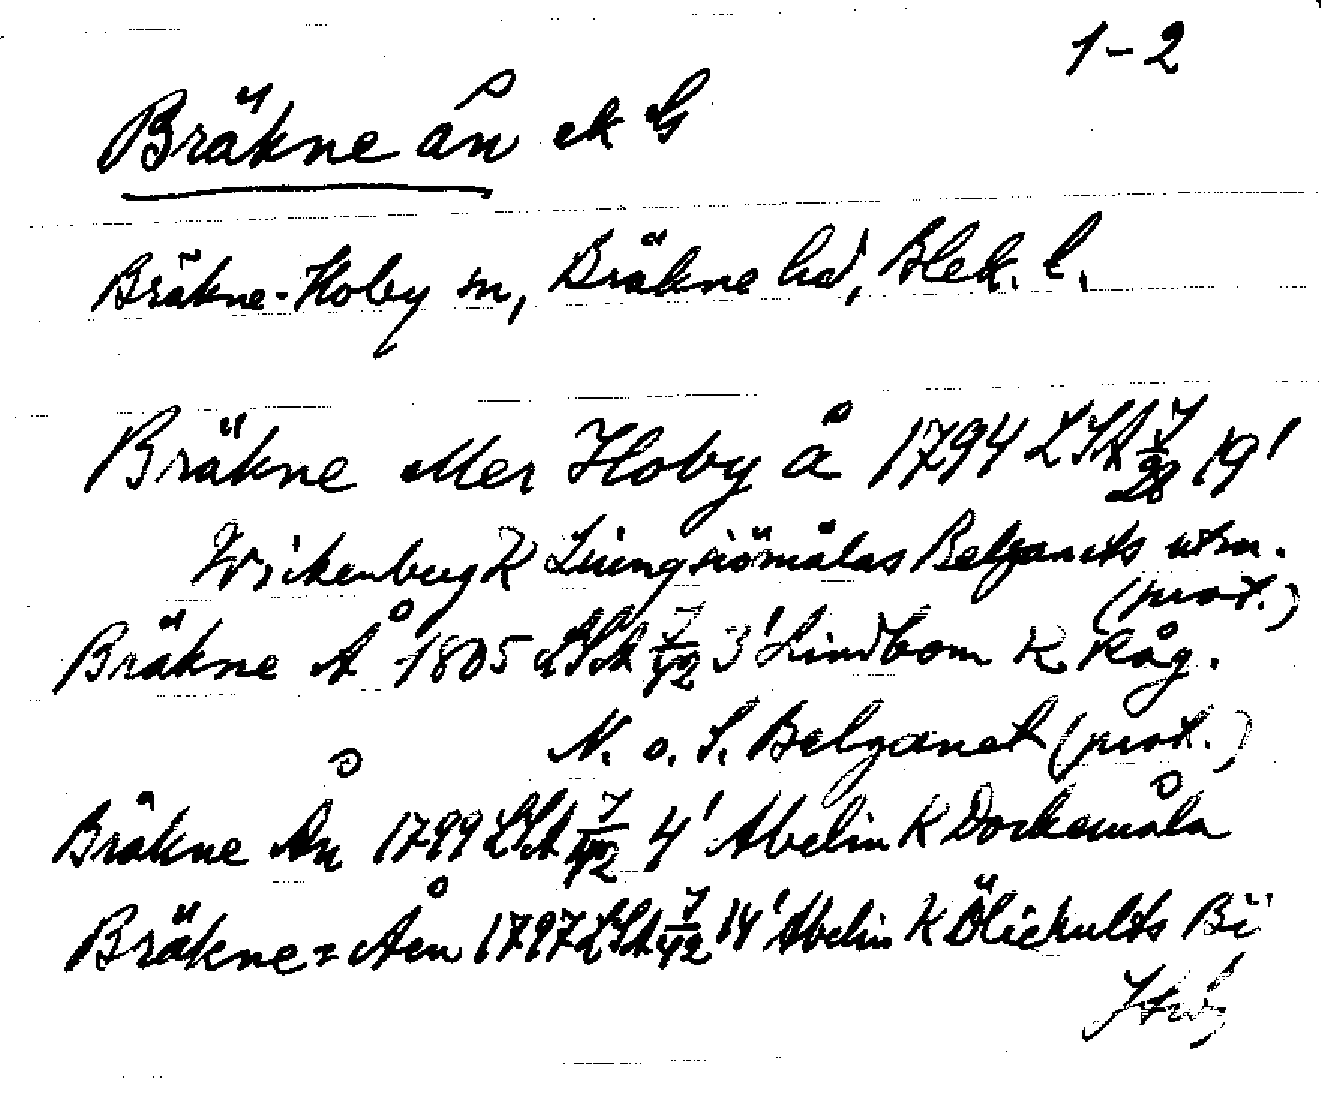 1-2
Bräkne ån ek G
Bräkne-Hoby sn, Bräkne hd, Blek. l.
Bräkne eller Hoby å 1794 LSA 19'
Wickenberg K Liungsiömålas Belganets utm.
(prot.)
Bräkne Å 1805 LSA 7/42 3' Lindbom K Råg.
N. o. S. Belganet (prot.)
Bräkne Ån 1799 LSA 7/42 4' Abelin K Dockemåla
Bräkne=Åen 1797 LSA 7/42 14' Abelin K Öliekults Bÿ